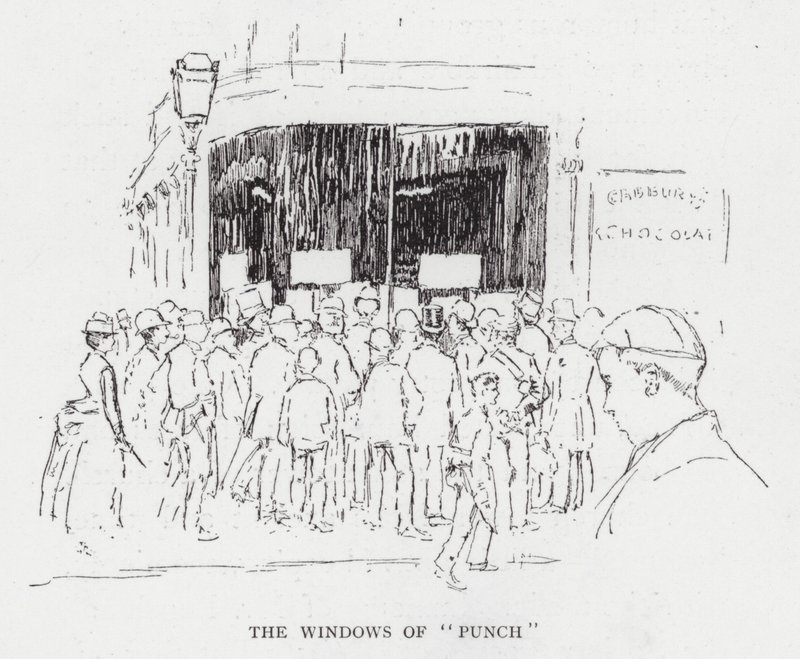 CADBURYS
CHOCOLAT
THE WINDOWS OF "PUNCH"